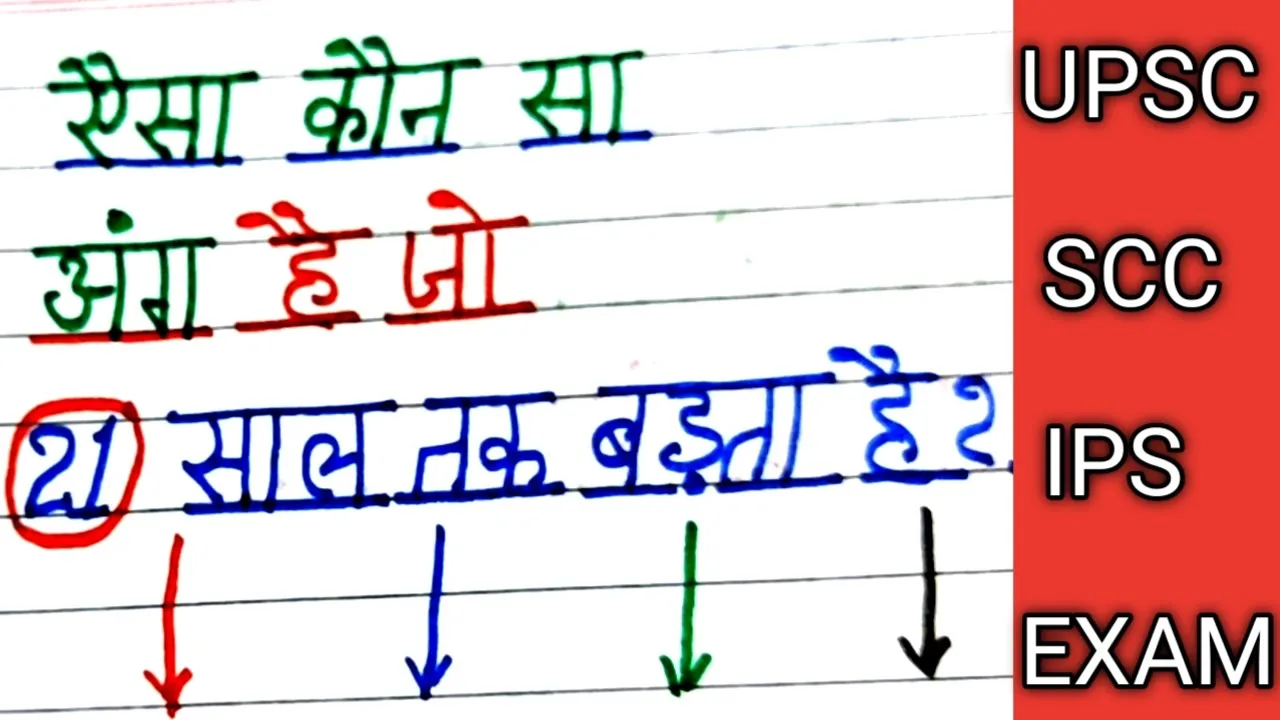 ऐसा कौन सा
अंग है जो
21 साल तक बड़ता है?
UPSC
SCC
IPS
EXAM